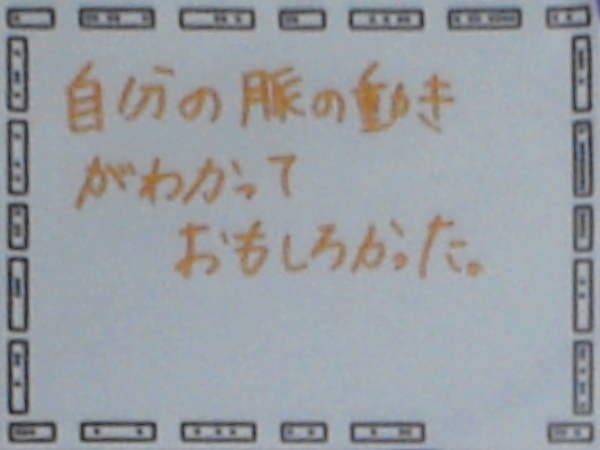 自分の脈の動き
がわかって
おもしろかった。